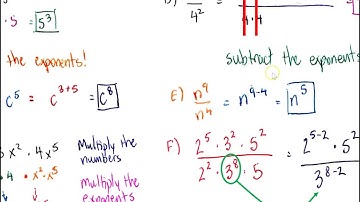 = 5³
4²
4 · 4
the exponents!
subtract the exponents
c⁵ = c³⁺⁵ = c⁸
E) n⁹/n⁴ = n⁹⁻⁴ = n⁵
x² · 4x⁵ Multiply the numbers
4 · x² · x⁵ multiply the exponents
F) 2⁵ · 3² · 5² / 2² · 3⁸ · 5 = 2⁵⁻² · 5² / 3⁸⁻²